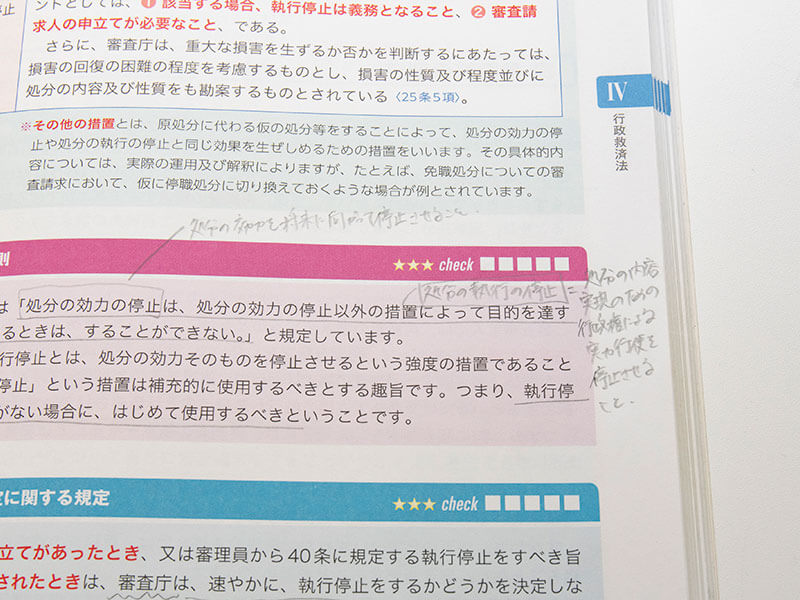 ントとしては、❶ 該当する場合、執行停止は義務となること、❷ 審査請
求人の申立てが必要なこと、である。
さらに、審査庁は、重大な損害を生ずるか否かを判断するにあたっては、
損害の回復の困難の程度を考慮するものとし、損害の性質及び程度並びに
処分の内容及び性質をも勘案するものとされている〈25条5項〉。
※その他の措置とは、原処分に代わる仮の処分等をすることによって、処分の効力の停
止や処分の執行の停止と同じ効果を生ぜしめるための措置をいいます。その具体的内
容については、実際の運用及び解釈によりますが、たとえば、免職処分についての審
査請求において、仮に停職処分に切り換えておくような場合が例とされています。
IV
行政救済法
処分の効力を将来に向かって停止させること.
則
★★★ check
処分の執行の停止=
処分の内容
実現のための
行政権による
実力行使を
停止させる
こと.
は「処分の効力の停止は、処分の効力の停止以外の措置によって目的を達す
るときは、することができない。」と規定しています。
行停止とは、処分の効力そのものを停止させるという強度の措置であること
停止」という措置は補充的に使用するべきとする趣旨です。つまり、執行停
がない場合に、はじめて使用するべきということです。
に関する規定
★★★ check
立てがあったとき、又は審理員から40条に規定する執行停止をすべき旨
されたときは、審査庁は、速やかに、執行停止をするかどうかを決定しな